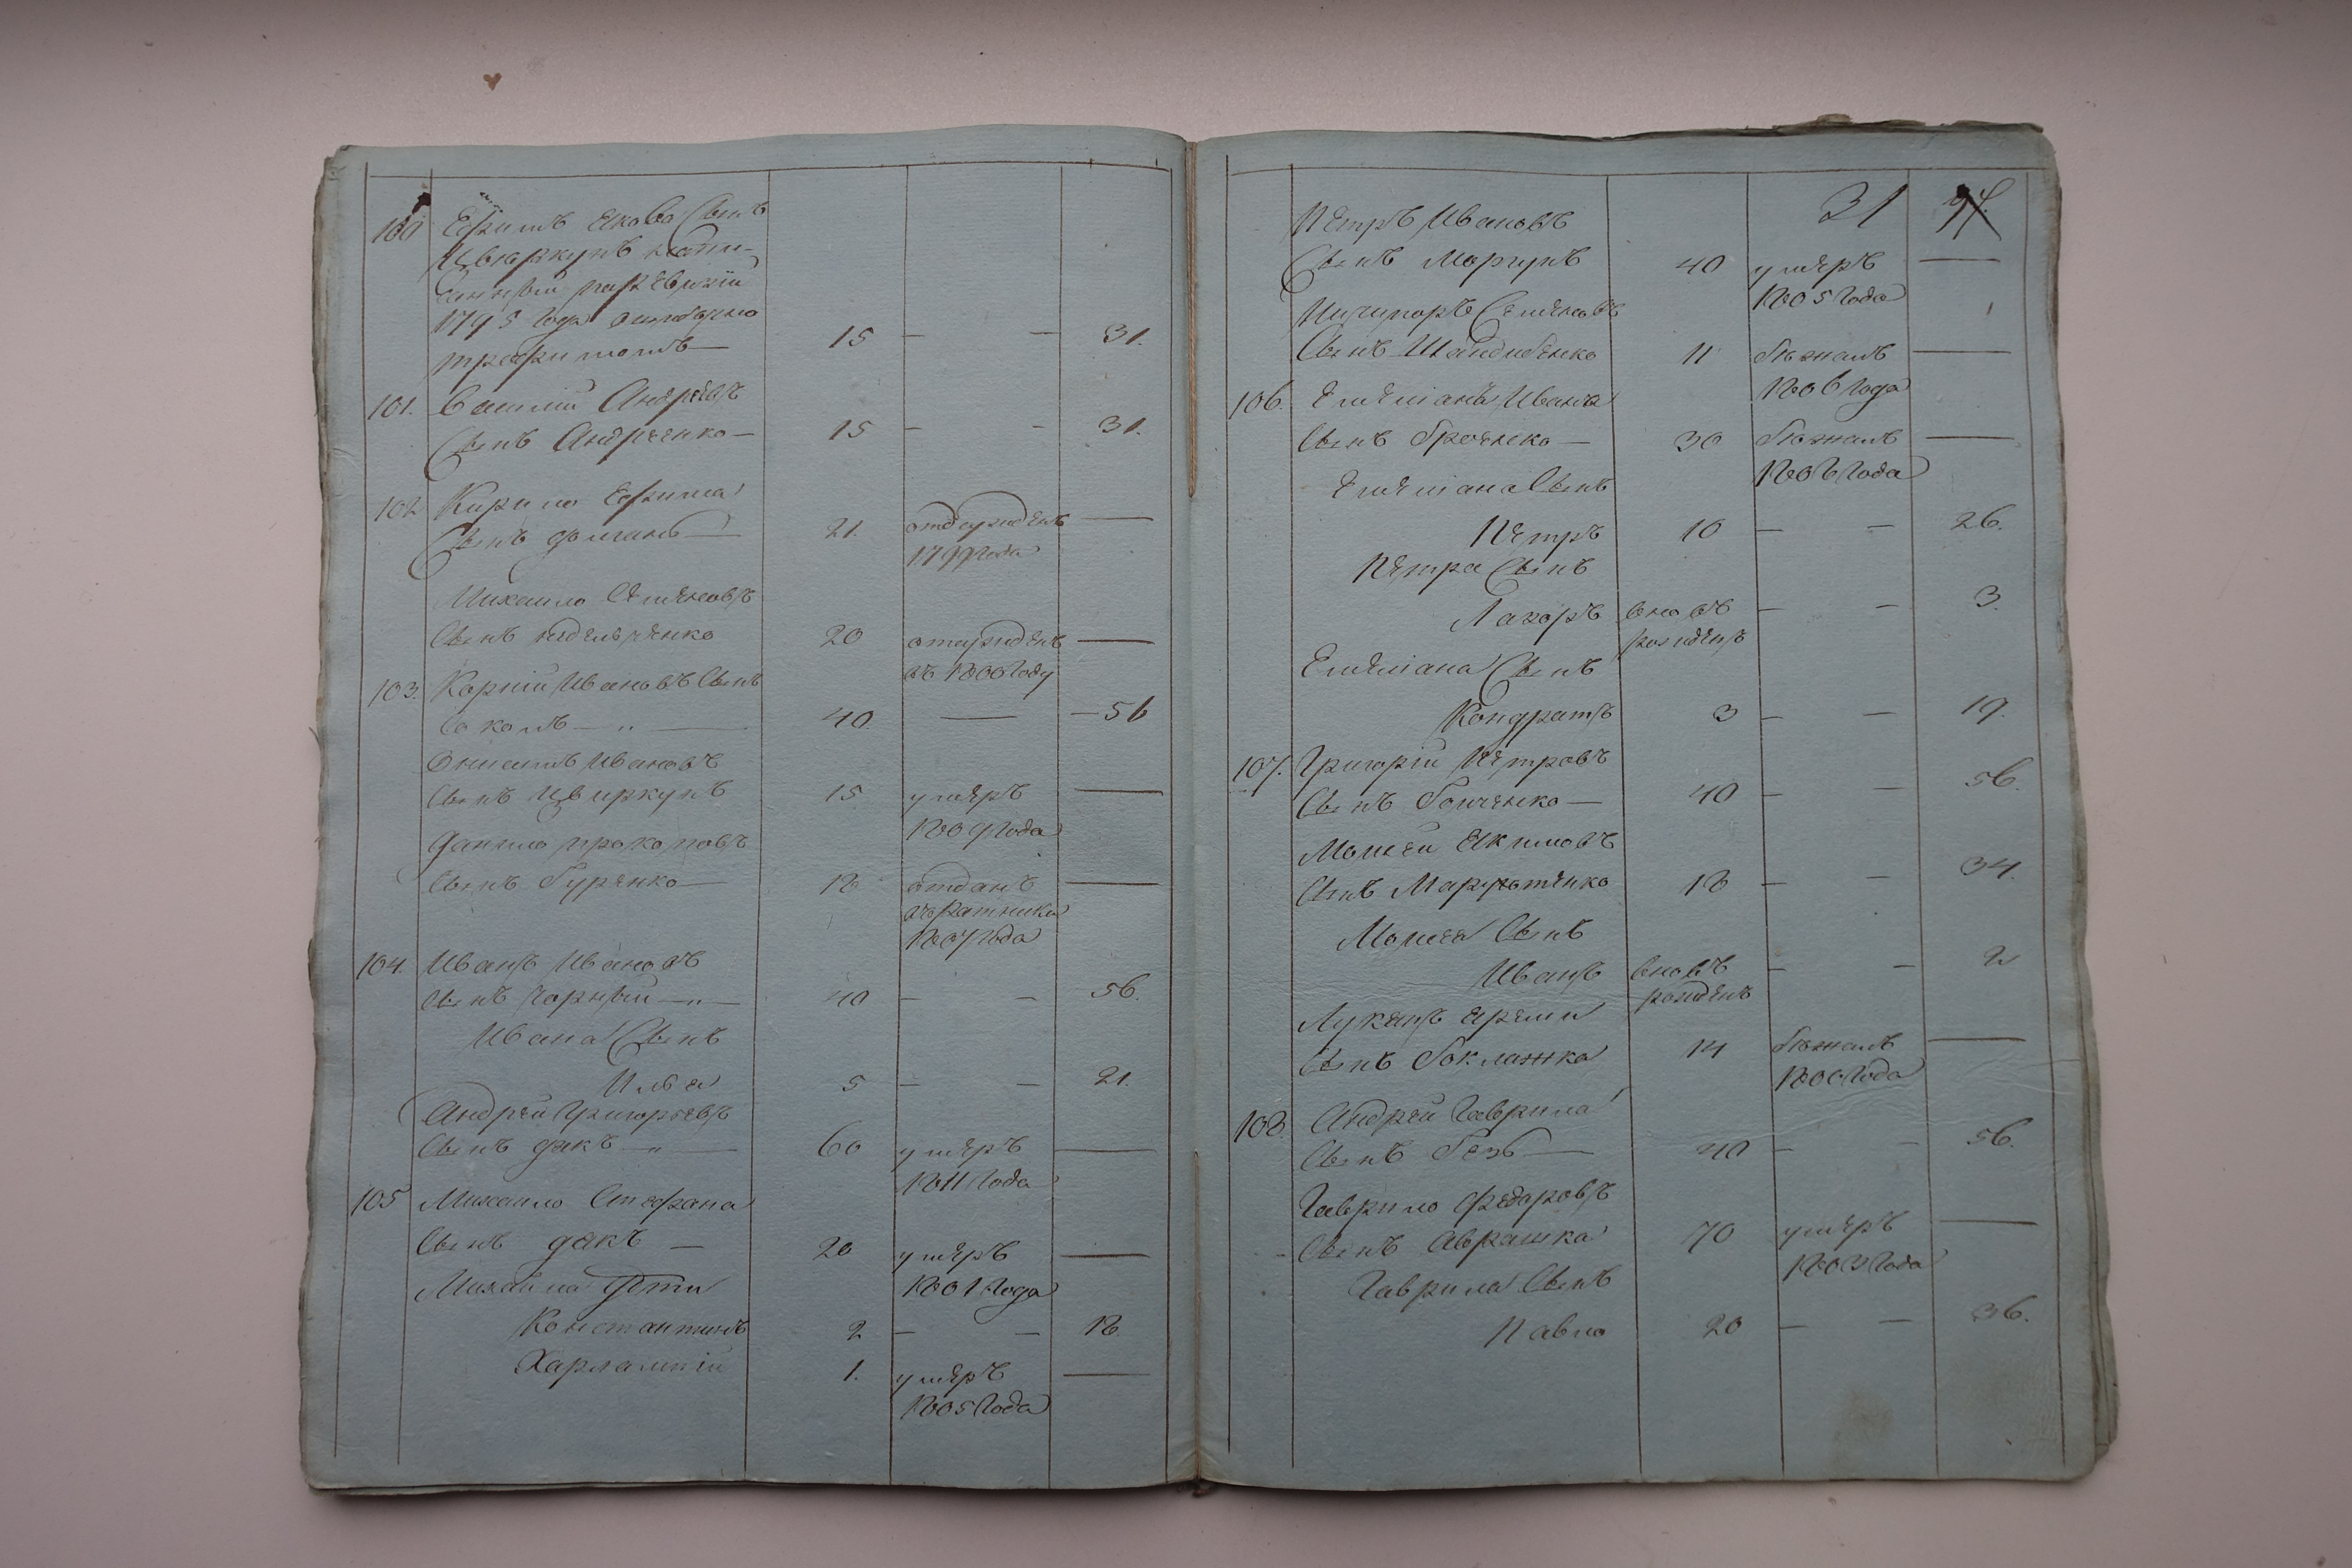 100 Ефимъ Якова Сынъ
Цвыркунъ напи-
санный по ревизіи
1795 года
15 — — 31.
101. Василій Андреевъ
Сынъ Андреенко — 15 — — 31.
102 Кирило Ефима
Сынъ 21. —
1799 года
Михаило Семеновъ
Сынъ 20 —
въ 1800 году
103. Корній Ивановъ Сынъ
Соколъ — „ — 40. — — 56
Онисимъ Ивановъ
Сынъ Цвиркунъ 15 умеръ —
1809 года
Данило Прокоповъ
Сынъ Гуренко — 18 отданъ —
въ Ратники
1807 года
104. Иванъ Ивановъ
Сынъ Чорный — „ — 40 — — 56.
Ивана Сынъ
Илья 5 — — 21.
Андрей Григорьевъ
Сынъ дякъ — „ — 60 умеръ —
1811 года
105 Михаило Стефана
Сынъ дякъ — 20 умеръ —
1801 года
Михайла Дѣти
Константинъ 2 — — 18.
Харлампій 1. умеръ —
1805 года
31 94.
Петръ Ивановъ
Сынъ Моргунъ 40 умеръ —
1805 года
Ничипоръ Семеновъ
Сынъ 11 бѣжалъ —
1806 года
106. Емеліанъ Ивана
Сынъ 30 бѣжалъ —
1806 года
Емеліана Сынъ
Петръ 10 — — 26.
Петра Сынъ
Захоръ вновь — — 3.
рожденъ
Емеліана Сынъ
Кондратъ 3 — — 19.
107. Григорій Петровъ
Сынъ Бойченко — 40 — — 56.
Моисей Якимовъ
Сынъ 18 — — 34.
Моисея Сынъ
Иванъ вновь — — 2
рожденъ
Лукянъ Яремы
Сынъ Боклажка 14 бѣжалъ —
1800 года
108. Андрей Гаврила
Сынъ — 40 — — 56.
Гаврило Федоровъ
Сынъ Аврашка 70 умеръ —
1803 года
Гаврила Сынъ
Павло 20 — — 36.